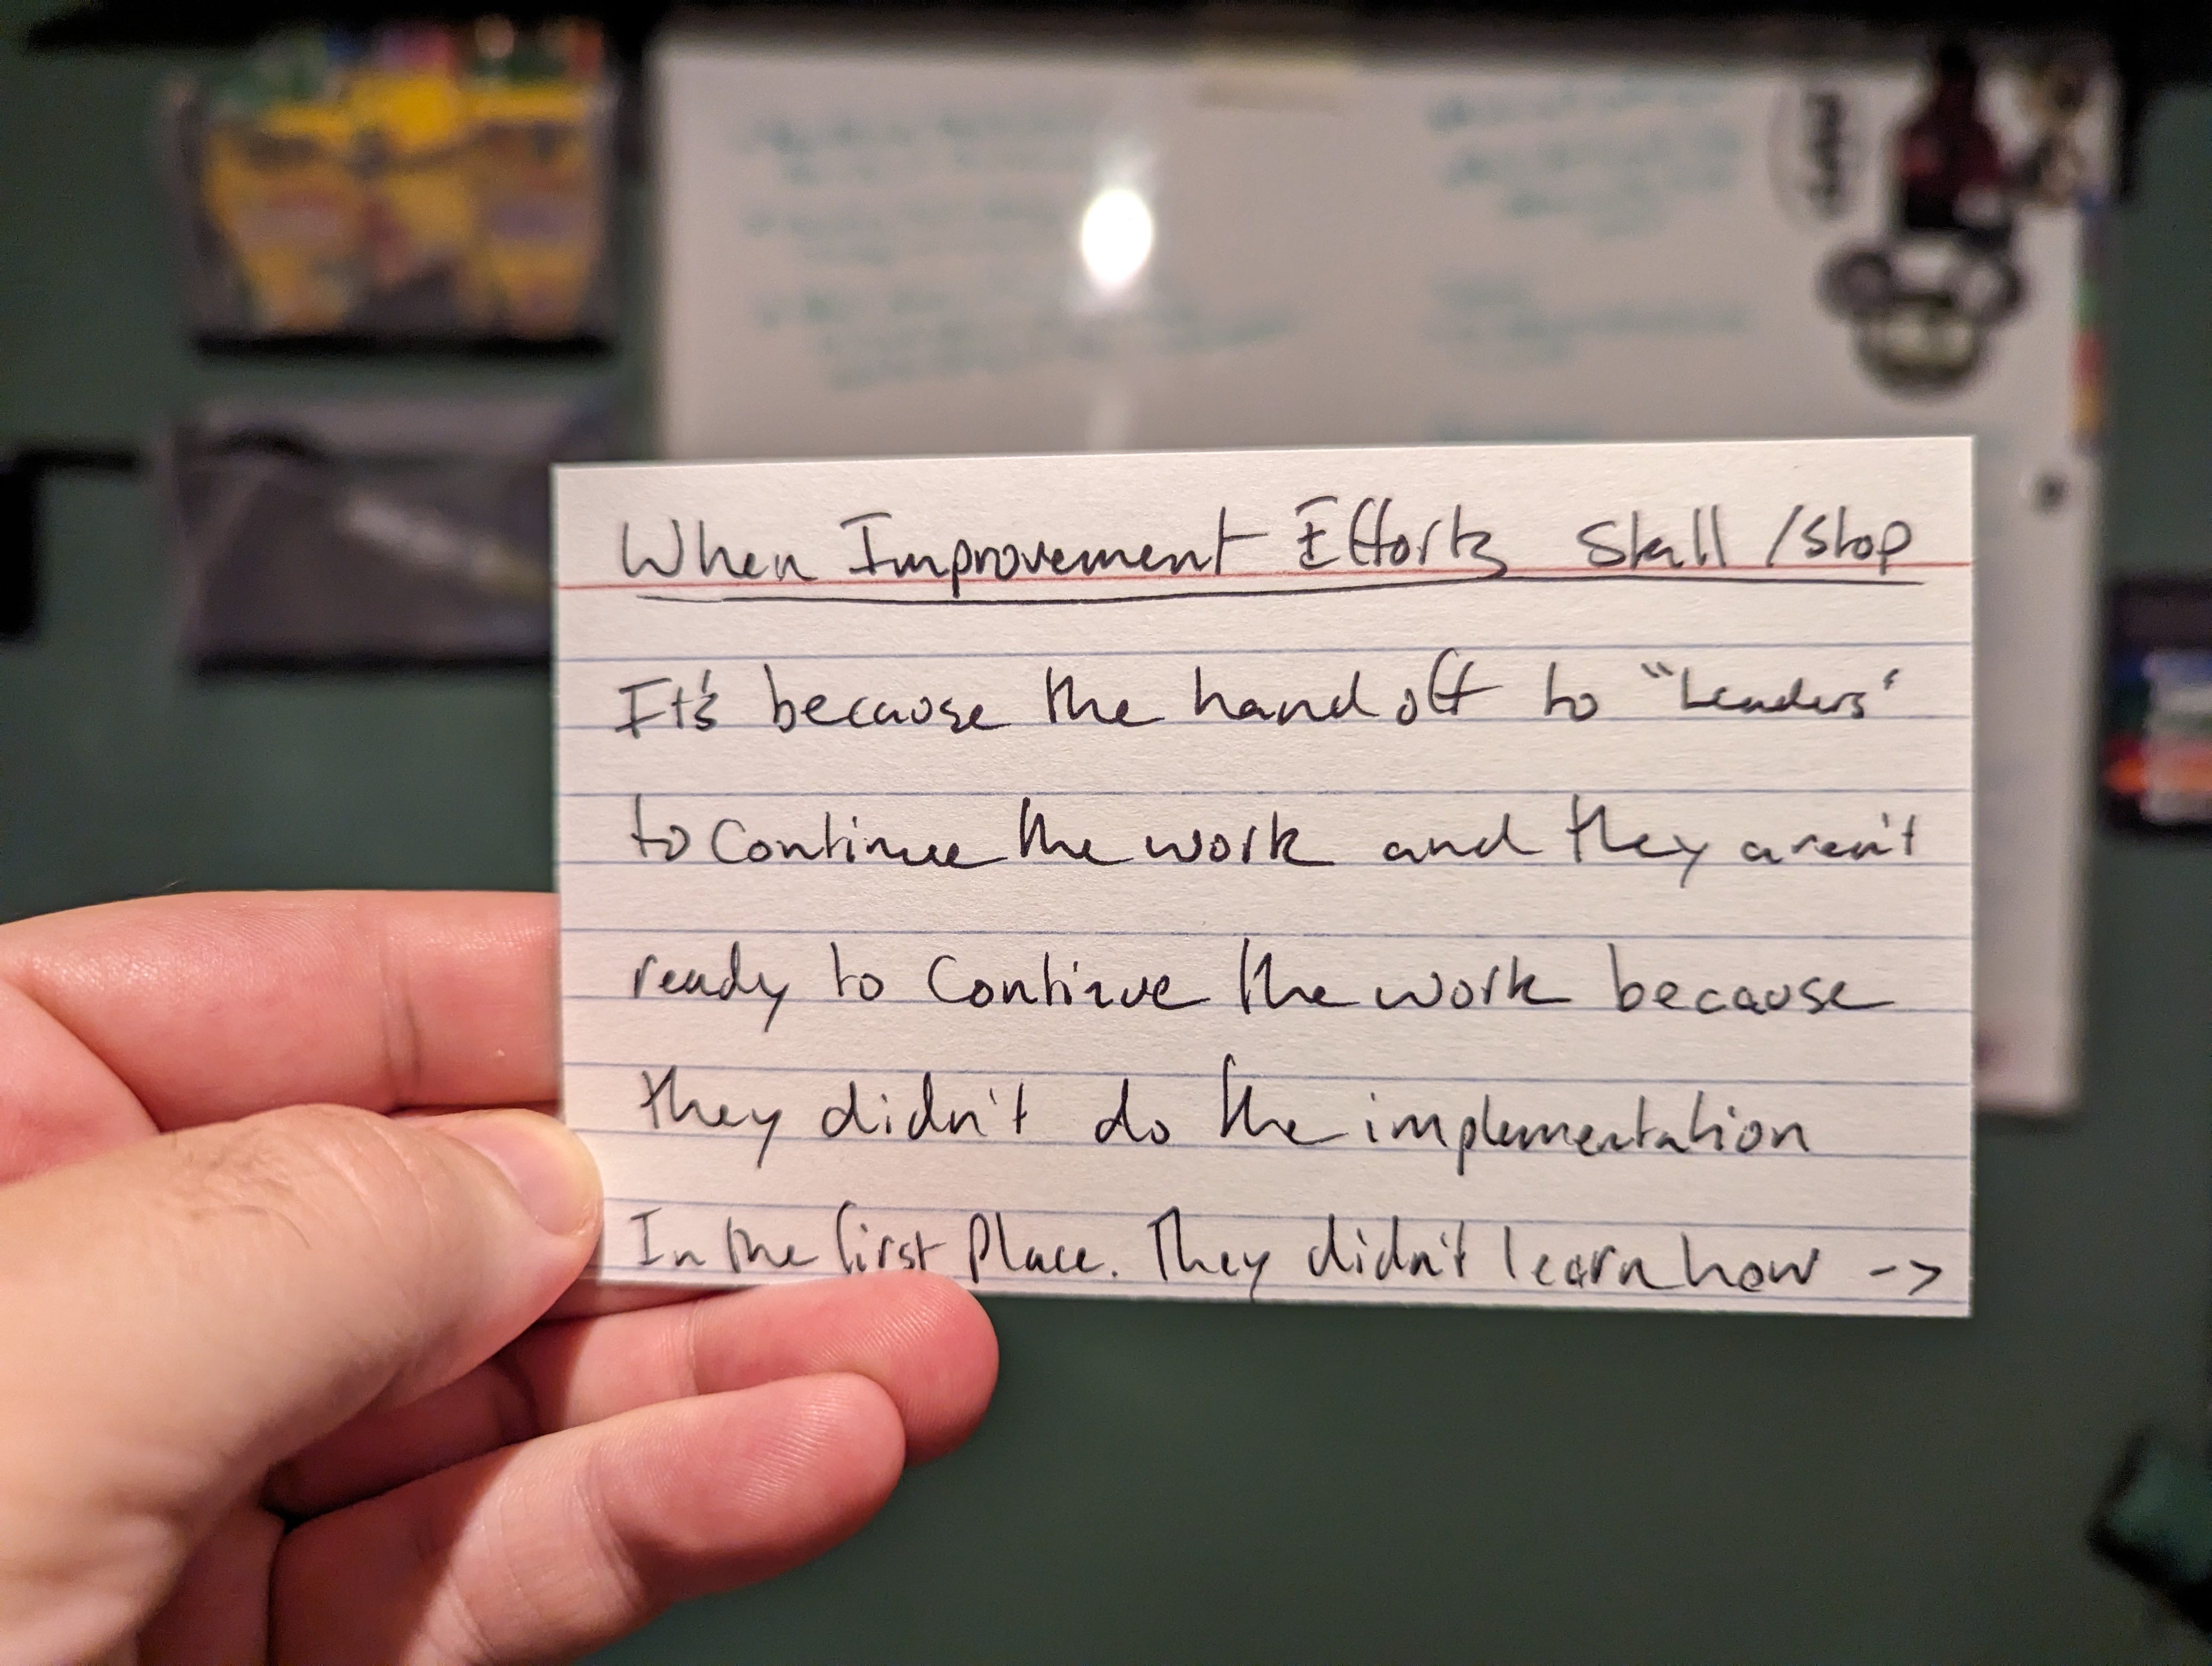 When Improvement Efforts Stall /stop
It's because the hand off to "Leaders"
to continue the work and they aren't
ready to Continue the work because
they didn't do the implementation
In the first Place. They didn't learn how ->